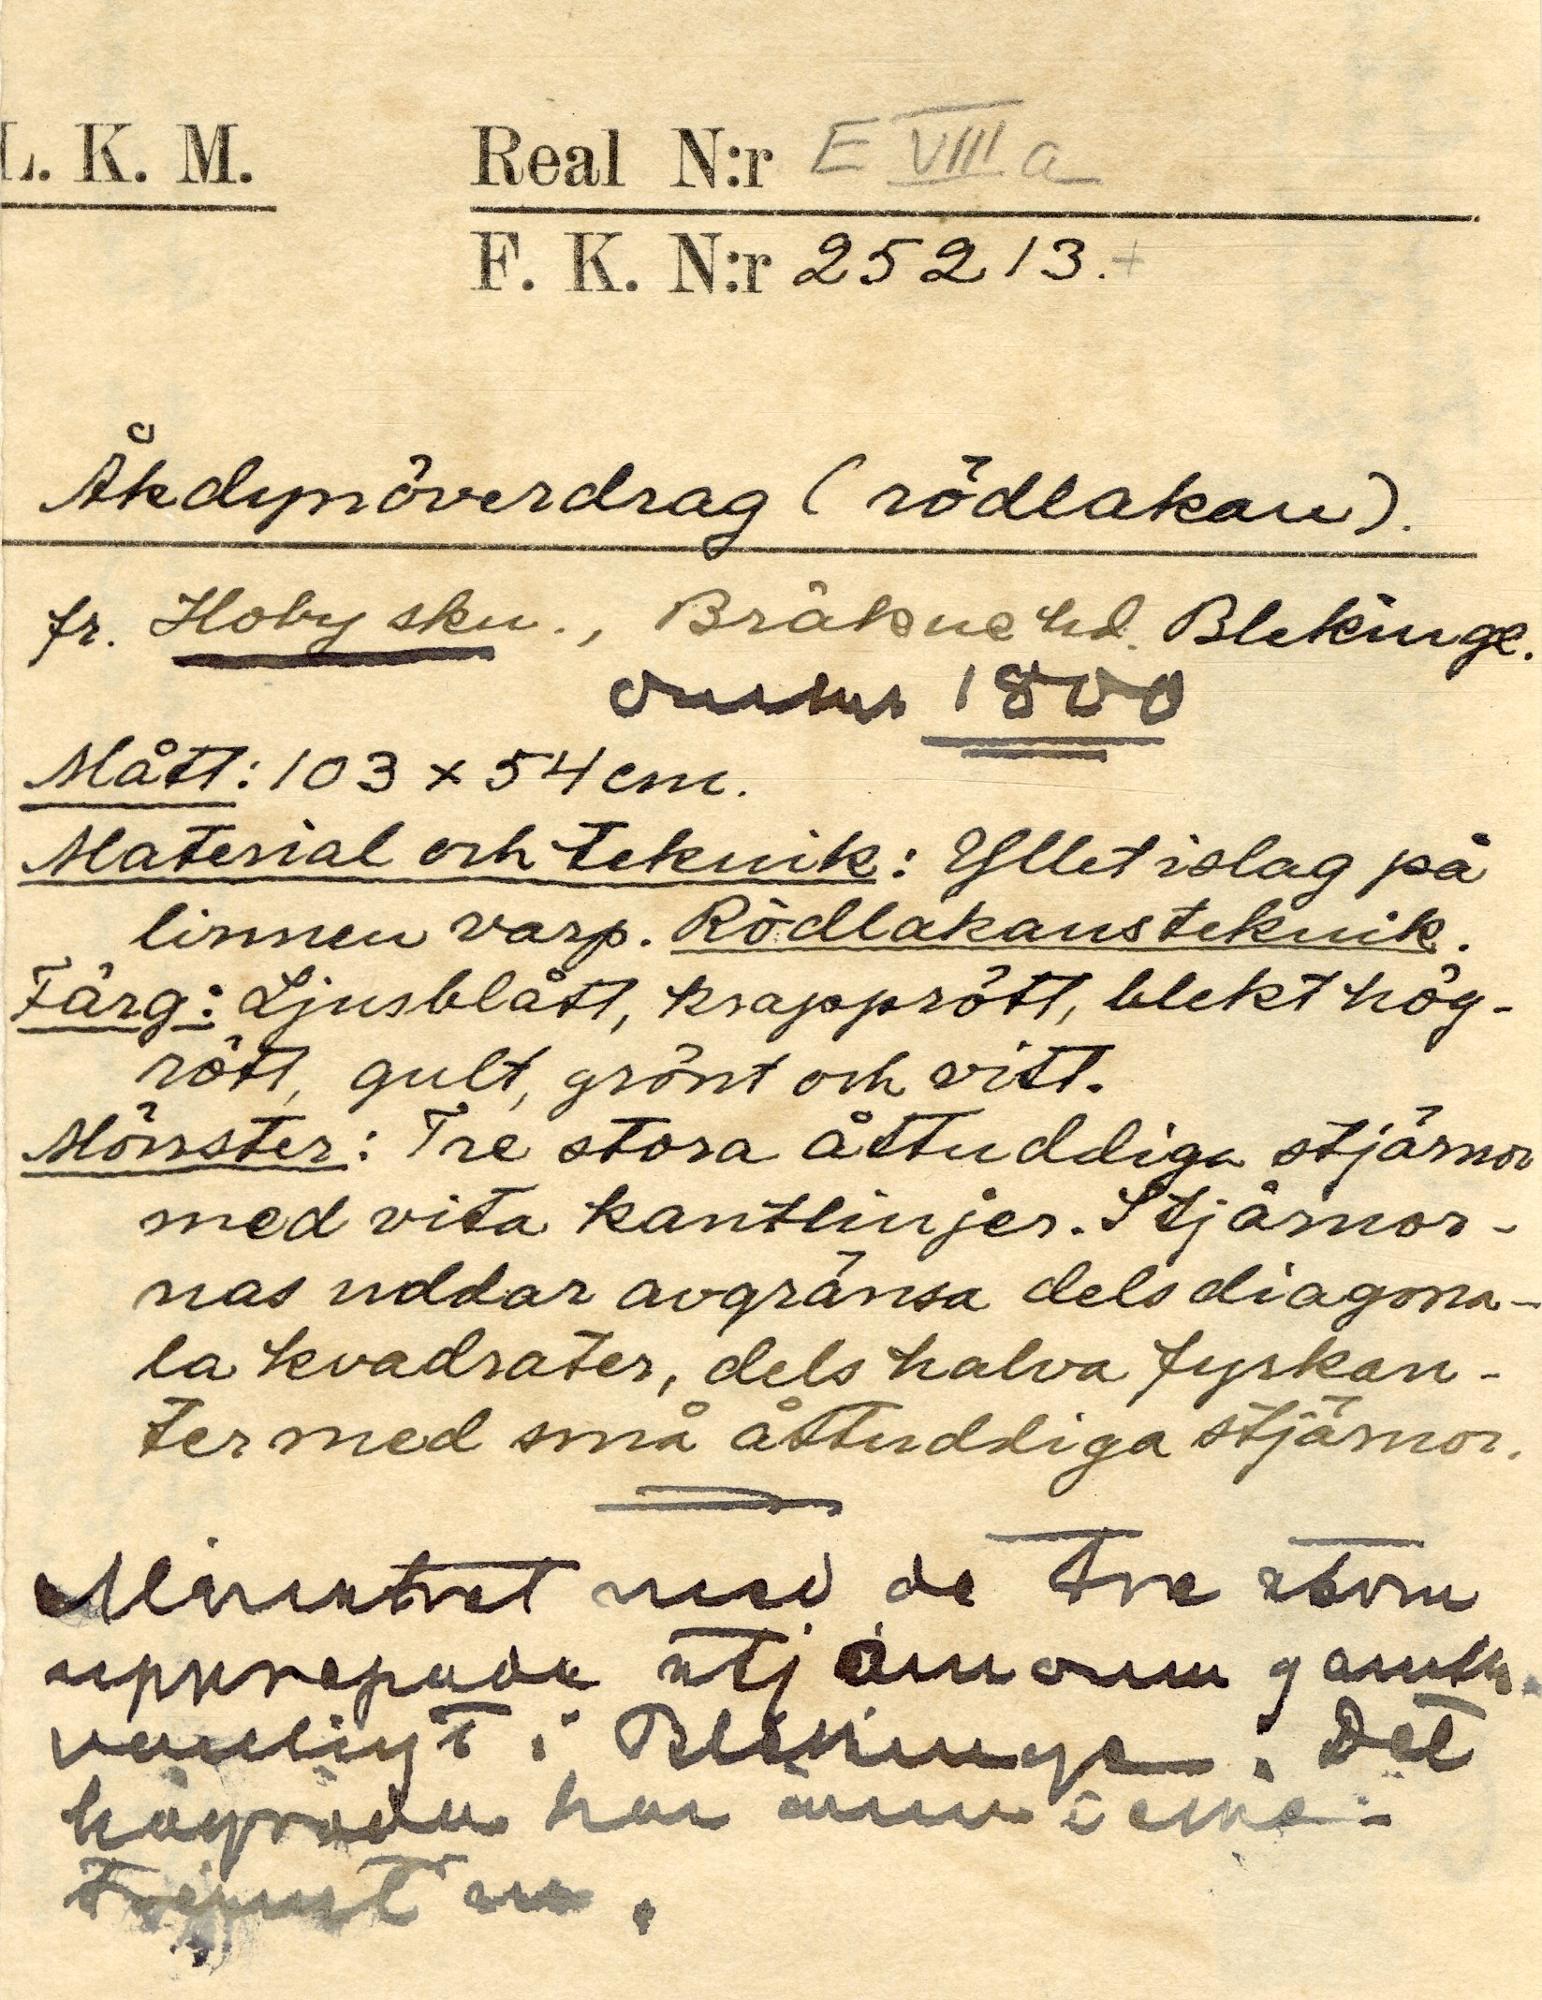 L. K. M. Real N:r E VIII a
F. K. N:r 25213.+
Åkdynöverdrag (rödlakan).
fr. Hoby skn., Bräkne hd. Blekinge.
omkr 1800
Mått: 103 x 54 cm.
Material och teknik: Ylletislag på
linnen varp. Rödlakansteknik.
Färg: Ljusblått, krapprött, blekt hög-
rött, gult, grönt och vitt.
Mönster: Tre stora åttuddiga stjärnor
med vita kantlinjer. Stjärnor-
nas uddar avgränsa dels diagona-
la kvadrater, dels halva fyrkan-
ter med små åttuddiga stjärnor.
Mönstret med de tre stora
upprepade stjärnorna ganska
vanligt i Blekinge. Det
högröda har ännu ej